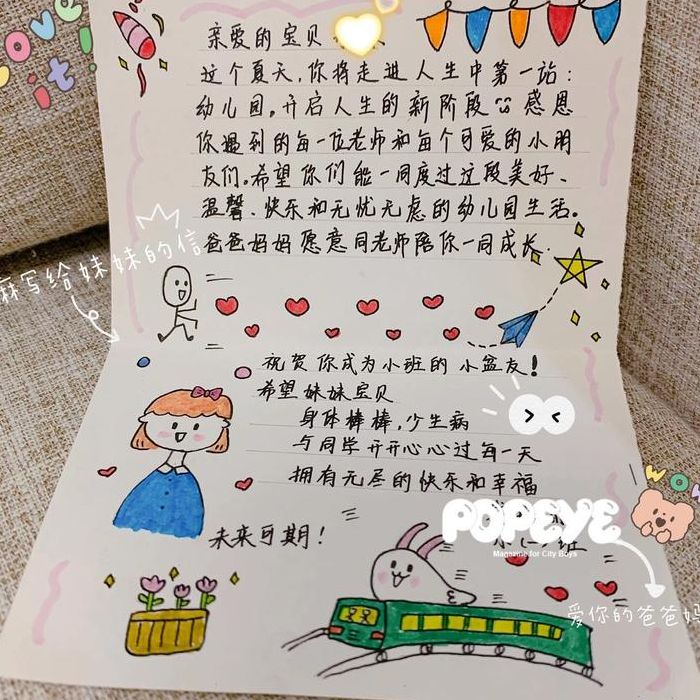 Love
it!
亲爱的宝贝
这个夏天,你将走进人生中第一站:
幼儿园。开启人生的新阶段 感恩
你遇到的每一位老师和每个可爱的小朋
友们。希望你们能一同度过这段美好、
温馨、快乐和无忧无虑的幼儿园生活。
爸爸妈妈愿意同老师陪你一同成长.
麻写给妹妹的信
祝贺你成为小班的小盆友!
希望妹妹宝贝
身体棒棒,少生病
与同学开开心心过每一天
拥有无尽的快乐和幸福
未来可期!
POPEYE
Magazine for City Boys
爱你的爸爸妈